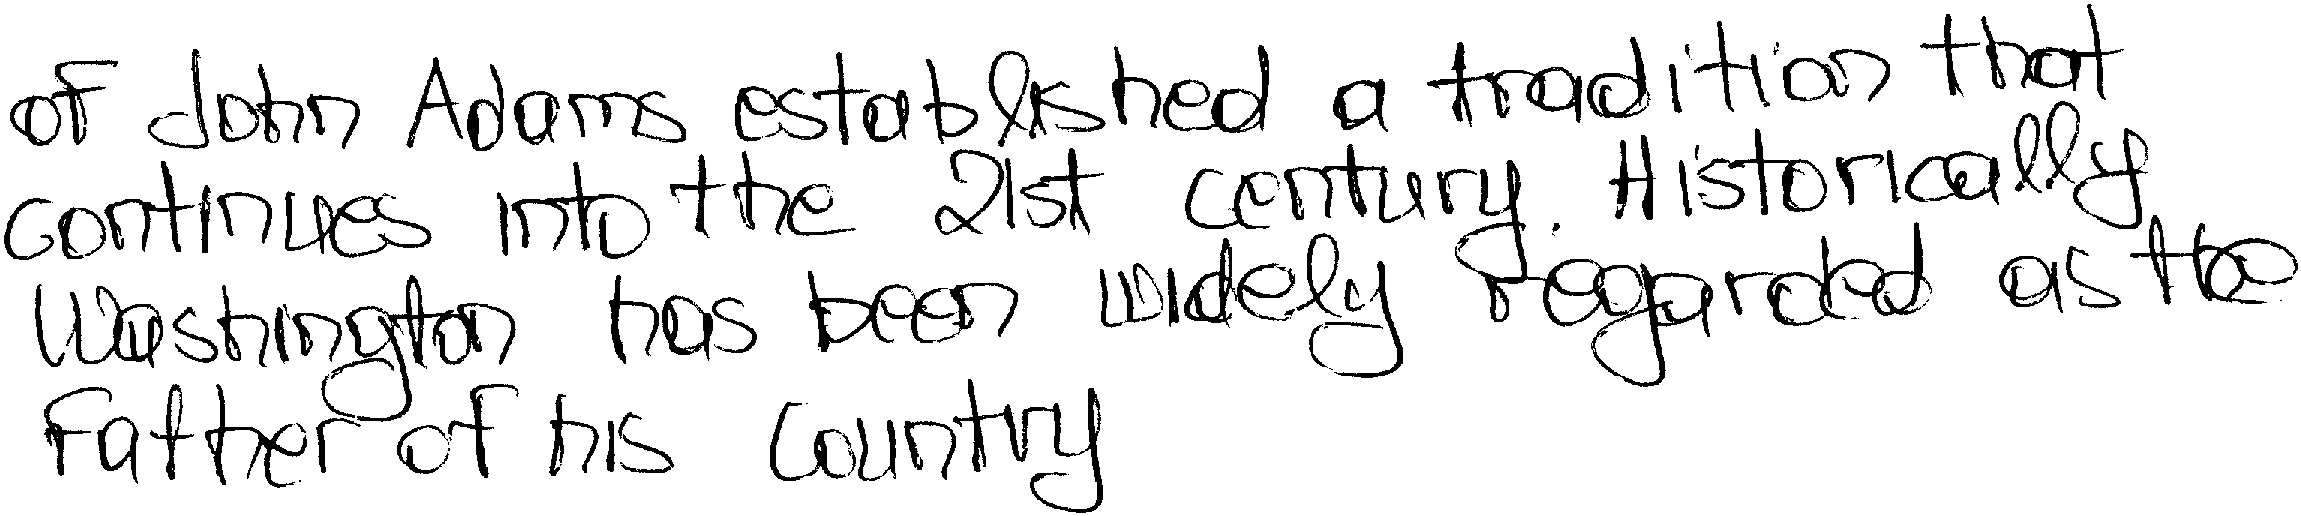 of John Adams established a tradition that
continues into the 21st century. Historically
Washington has been widely regarded as the
Father of his country